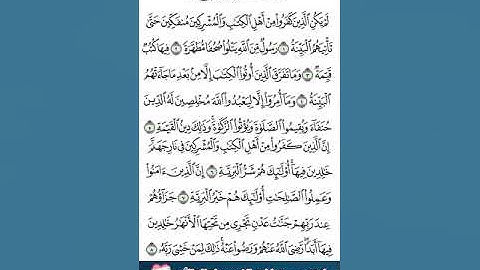 لَمْ يَكُنِ ٱلَّذِينَ كَفَرُوا۟ مِنْ أَهْلِ ٱلْكِتَٰبِ وَٱلْمُشْرِكِينَ مُنفَكِّينَ حَتَّىٰ
تَأْتِيَهُمُ ٱلْبَيِّنَةُ ١ رَسُولٌ مِّنَ ٱللَّهِ يَتْلُوا۟ صُحُفًا مُّطَهَّرَةً ٢ فِيهَا كُتُبٌ
قَيِّمَةٌ ٣ وَمَا تَفَرَّقَ ٱلَّذِينَ أُوتُوا۟ ٱلْكِتَٰبَ إِلَّا مِنۢ بَعْدِ مَا جَآءَتْهُمُ
ٱلْبَيِّنَةُ ٤ وَمَآ أُمِرُوٓا۟ إِلَّا لِيَعْبُدُوا۟ ٱللَّهَ مُخْلِصِينَ لَهُ ٱلدِّينَ
حُنَفَآءَ وَيُقِيمُوا۟ ٱلصَّلَوٰةَ وَيُؤْتُوا۟ ٱلزَّكَوٰةَ وَذَٰلِكَ دِينُ ٱلْقَيِّمَةِ ٥
إِنَّ ٱلَّذِينَ كَفَرُوا۟ مِنْ أَهْلِ ٱلْكِتَٰبِ وَٱلْمُشْرِكِينَ فِى نَارِ جَهَنَّمَ
خَٰلِدِينَ فِيهَآ أُو۟لَٰٓئِكَ هُمْ شَرُّ ٱلْبَرِيَّةِ ٦ إِنَّ ٱلَّذِينَ ءَامَنُوا۟
وَعَمِلُوا۟ ٱلصَّٰلِحَٰتِ أُو۟لَٰٓئِكَ هُمْ خَيْرُ ٱلْبَرِيَّةِ ٧ جَزَآؤُهُمْ
عِندَ رَبِّهِمْ جَنَّٰتُ عَدْنٍ تَجْرِى مِن تَحْتِهَا ٱلْأَنْهَٰرُ خَٰلِدِينَ
فِيهَآ أَبَدًا رَّضِىَ ٱللَّهُ عَنْهُمْ وَرَضُوا۟ عَنْهُ ذَٰلِكَ لِمَنْ خَشِىَ رَبَّهُۥ ٨